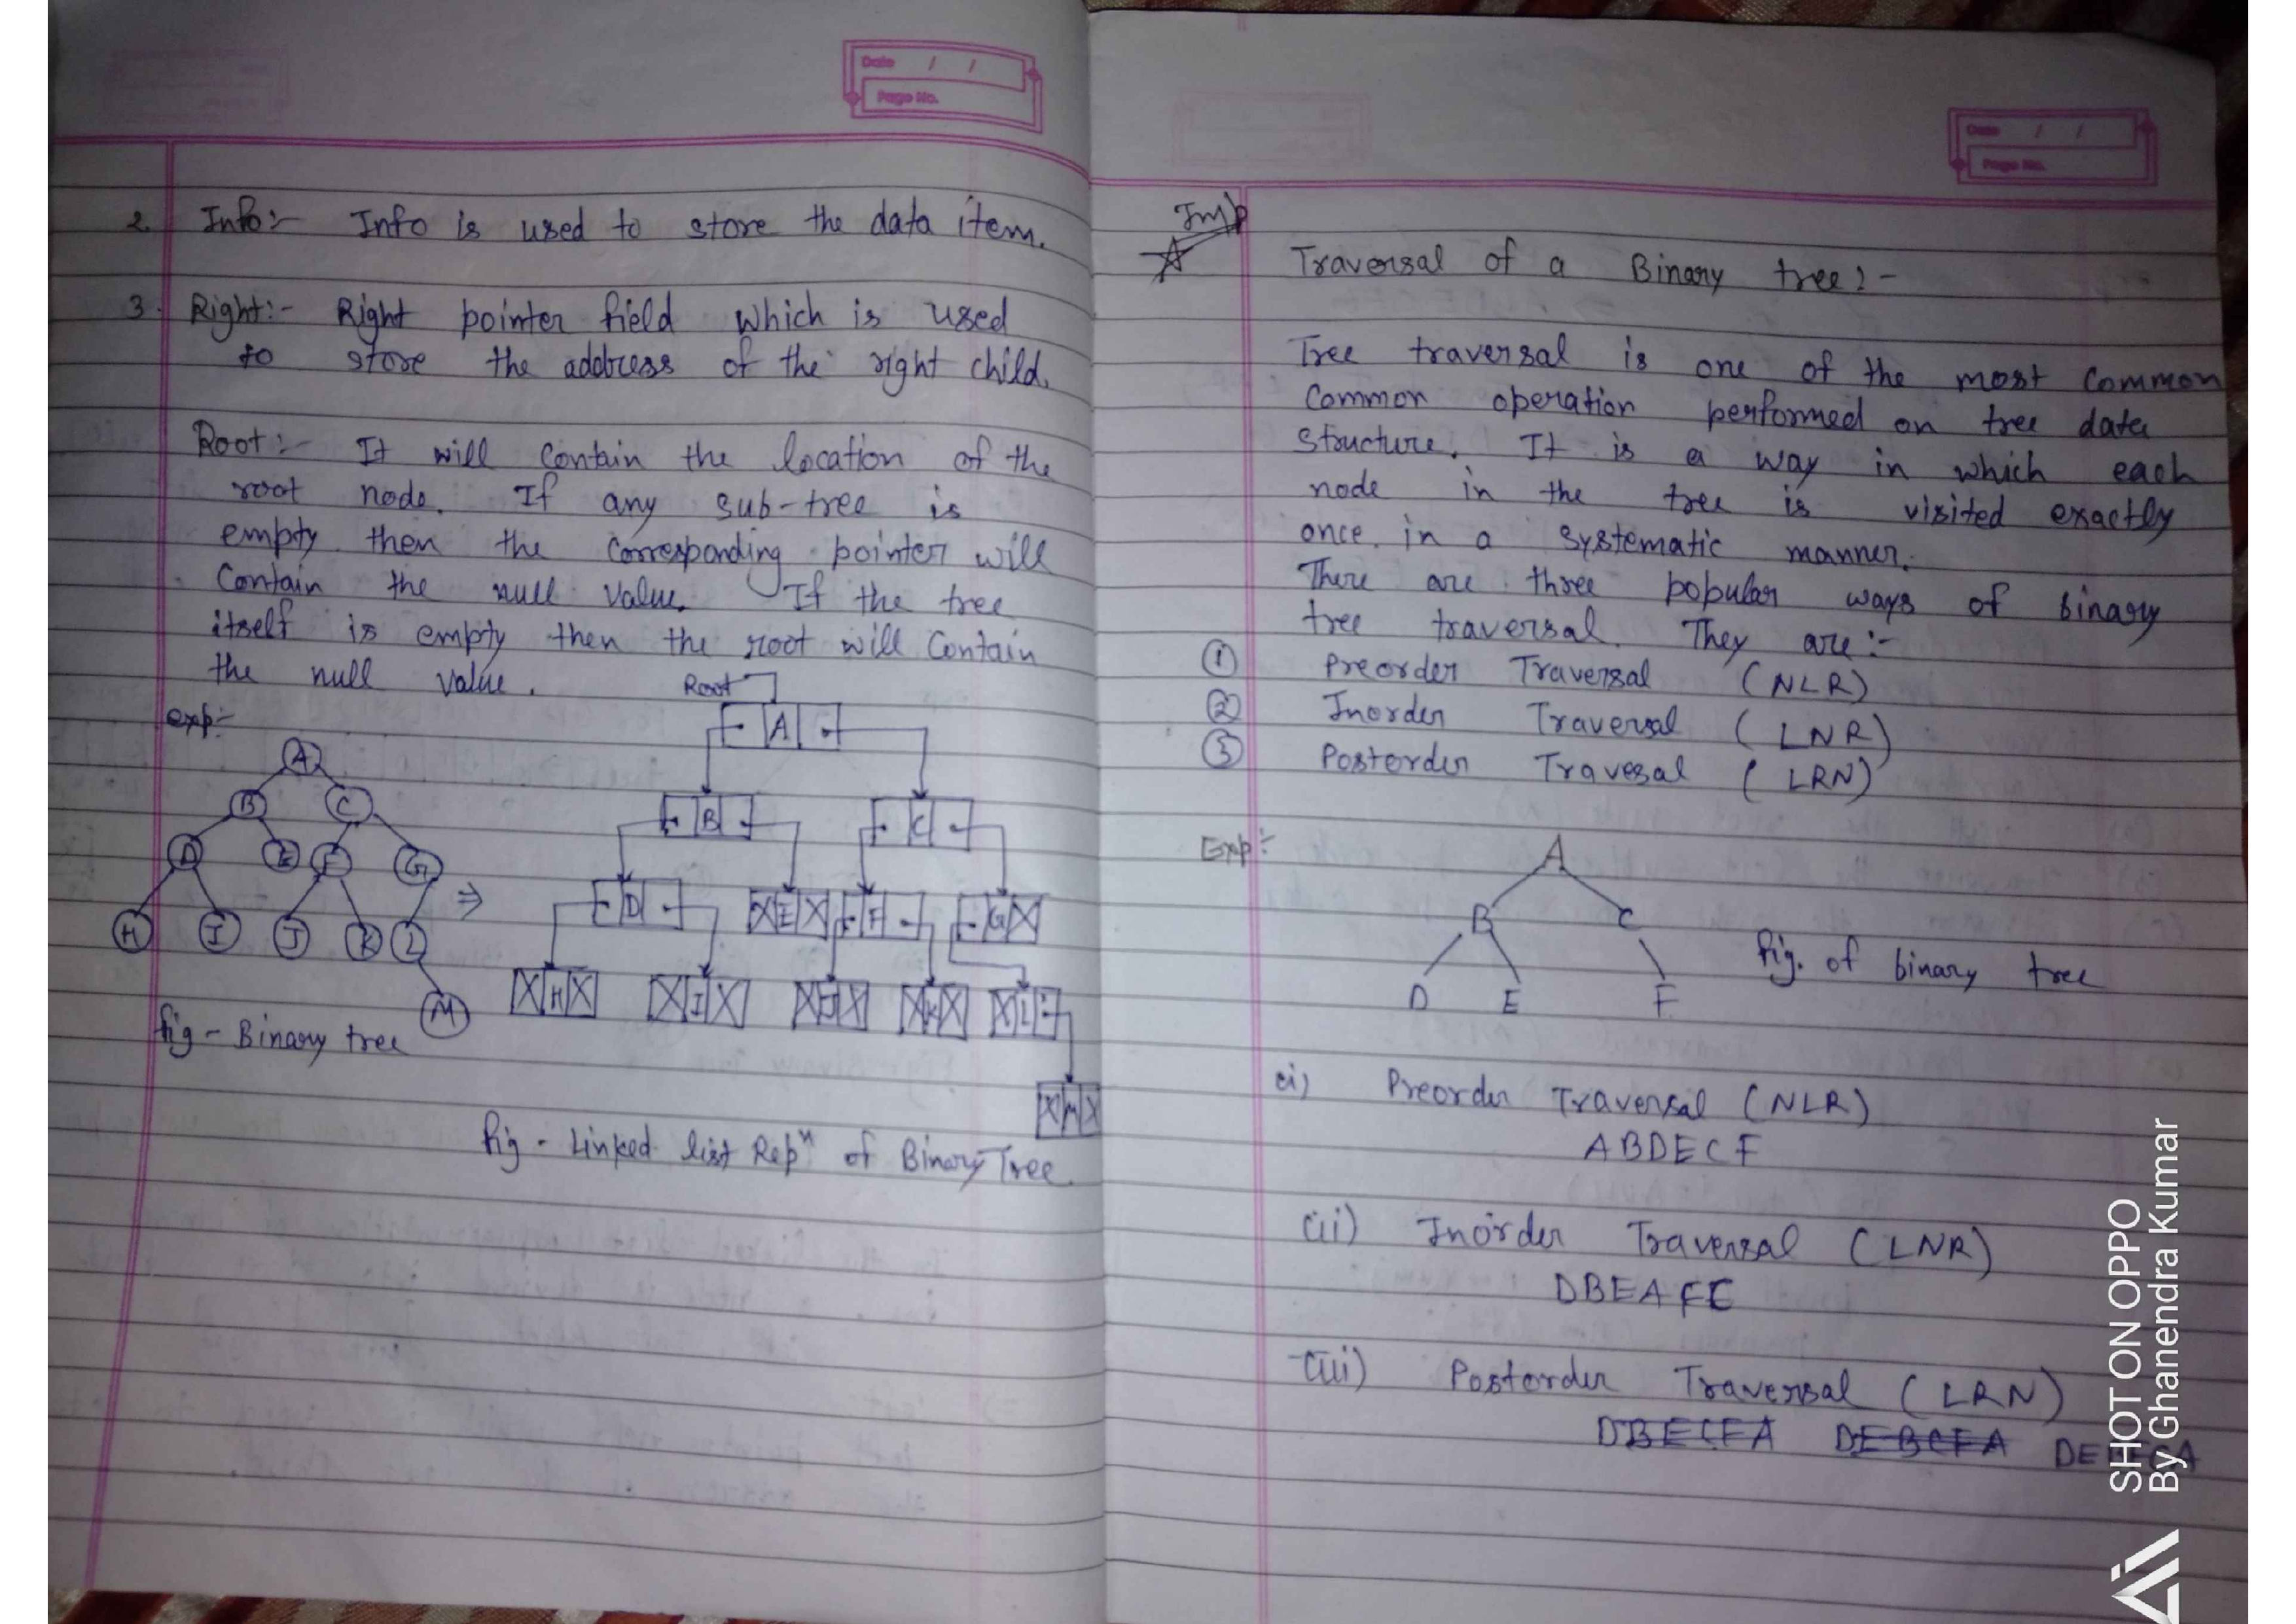 Date / /
Page No.
2. Info:- Info is used to store the data item.
3. Right:- Right pointer field which is used
to store the address of the right child.
Root:- It will contain the location of the
root node. If any sub-tree is
empty then the corresponding pointer will
contain the null value. If the tree
itself is empty then the root will contain
the null value.
Root
exp:-
A
B C
D E F G
H I J K L
M
fig - Binary tree
A
B C
X E X
D F G X
X H X X I X X J X X K X X L
X M X
fig - Linked list Repn of Binary Tree
Date / /
Page No.
Imp
Traversal of a Binary tree:-
Tree traversal is one of the most common
common operation performed on tree data
structure. It is a way in which each
node in the tree is visited exactly
once in a systematic manner.
There are three popular ways of binary
tree traversal. They are:-
① Preorder Traversal (NLR)
② Inorder Traversal (LNR)
③ Postorder Travesal (LRN)
Exp:-
A
B C
D E F
fig. of binary tree
(i) Preorder Traversal (NLR)
ABDECF
(ii) Inorder Traversal (LNR)
DBEAFC
(iii) Postorder Traversal (LRN)
DBECFA DEBCFA DE
SHOT ON OPPO
By Ghanendra Kumar